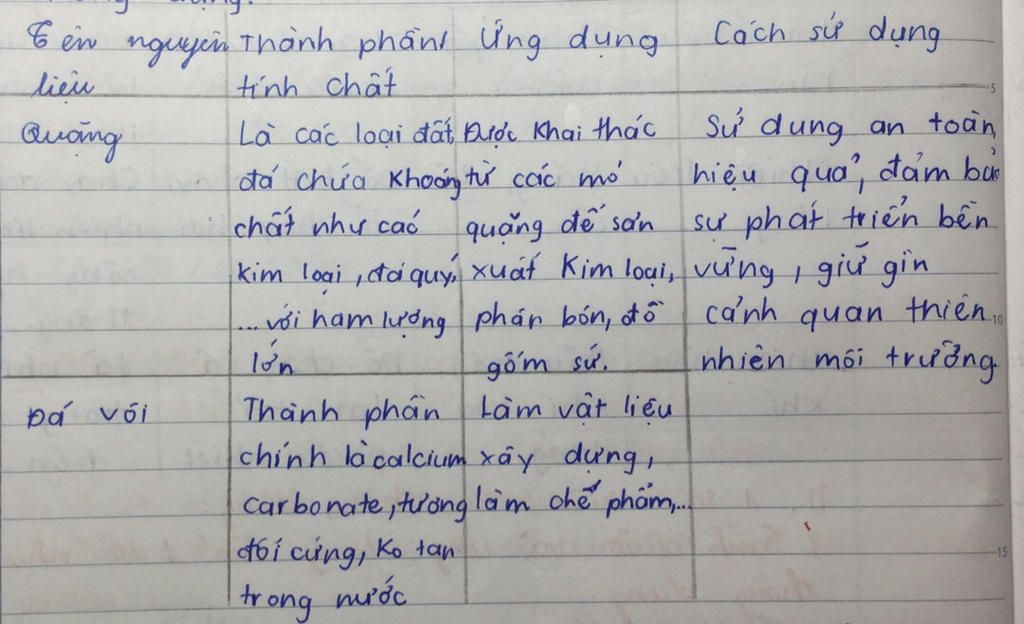 Tên nguyên Thành phần/ Ứng dụng Cách sử dụng
liệu tính chất
Quặng Là các loại đất, Được khai thác Sử dung an toàn,
đá chứa khoáng từ các mỏ hiệu quả, đảm bảo
chất như các quặng để sản sự phát triển bền
kim loại, đá quý, xuất kim loại, vững, giữ gìn
...với hàm lượng phân bón, đồ cảnh quan thiên
lớn gốm sứ. nhiên môi trường
Đá vôi Thành phần Làm vật liệu
chính là calcium xây dựng,
carbonate, tương làm chế phẩm,...
đối cứng, ko tan
trong nước